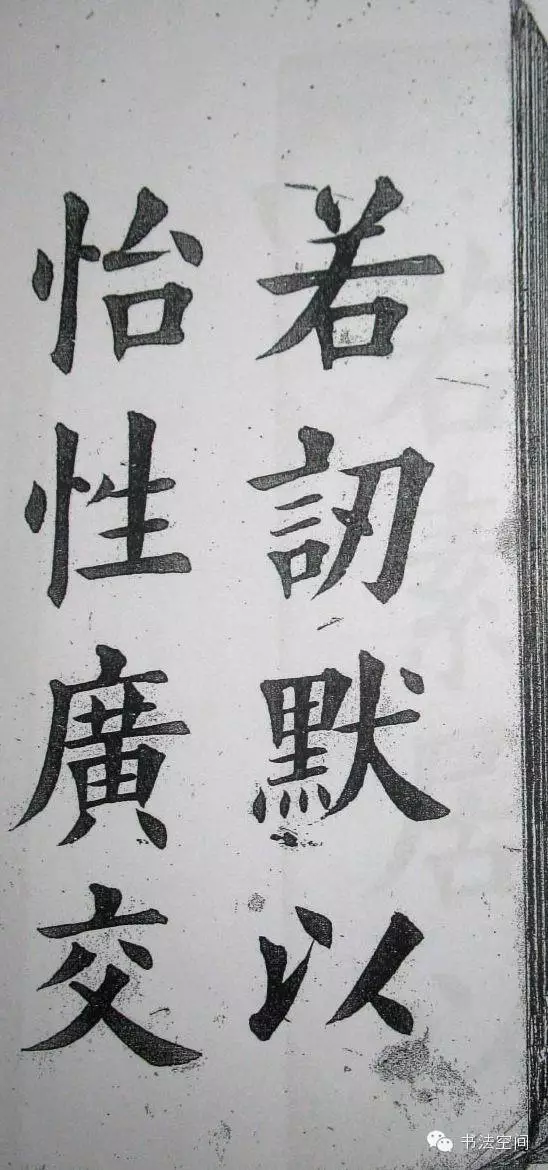 若訒默以
怡性廣交
书法空间